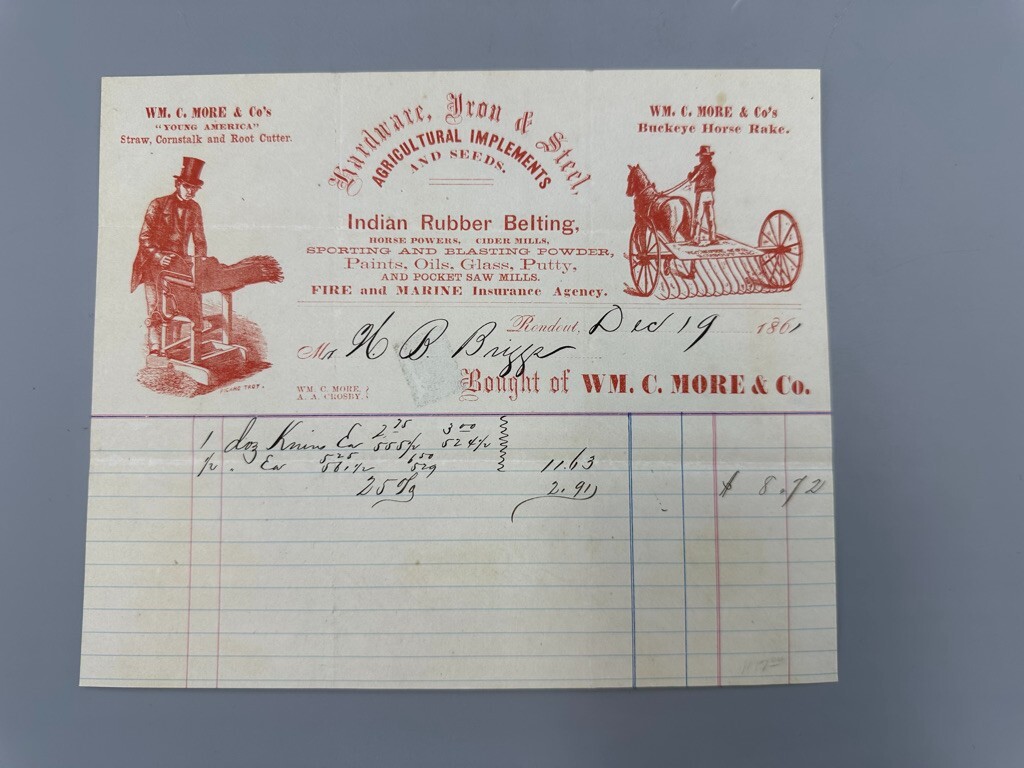 WM. C. MORE & Co's
"YOUNG AMERICA"
Straw, Cornstalk and Root Cutter.
Hardware, Iron & Steel,
AGRICULTURAL IMPLEMENTS
AND SEEDS.
Indian Rubber Belting,
HORSE POWERS, CIDER MILLS,
SPORTING AND BLASTING POWDER,
Paints, Oils, Glass, Putty,
AND POCKET SAW MILLS.
FIRE and MARINE Insurance Agency.
WM. C. MORE & Co's
Buckeye Horse Rake.
Rondout, Dec 19 1861
Mr H B Briggs
WM. C. MORE,
A. A. CROSBY.
Bought of WM. C. MORE & Co.
1 doz Ea 2.75 3.00
555 524
Ea 5.25 1.50
561 529 11.63
25% 2.91 $ 8.72